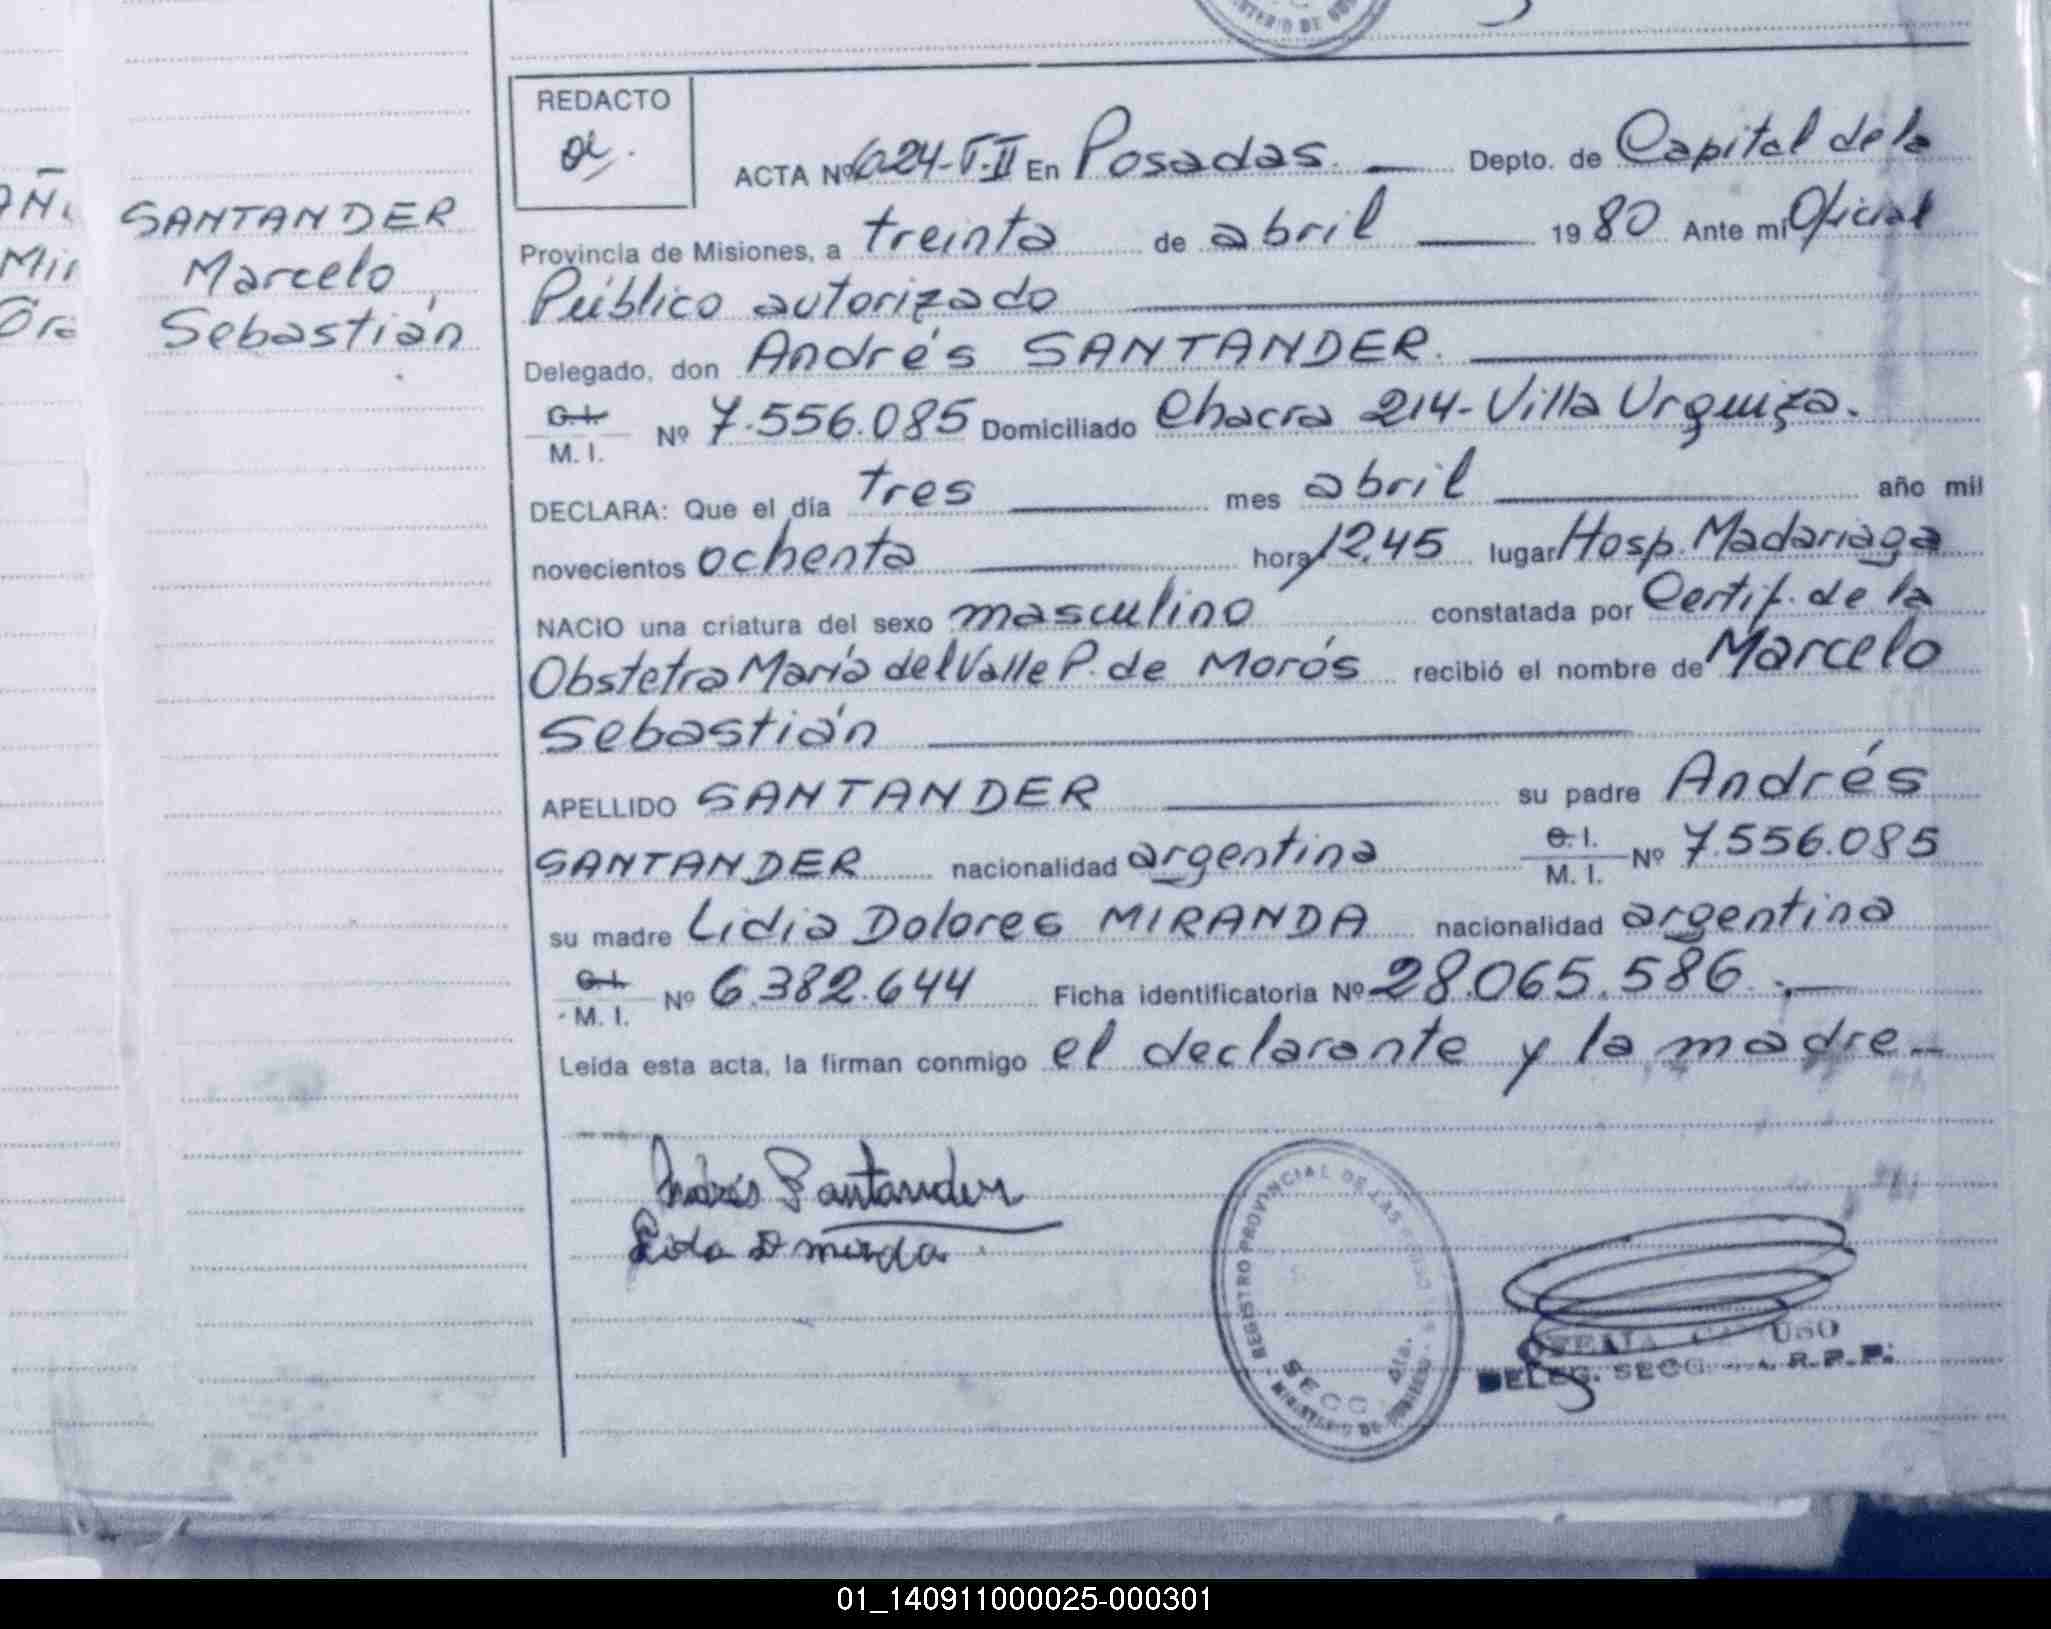 SANTANDER
Marcelo
Sebastián
REDACTO
ACTA Nº 624-T-II En Posadas. Depto. de Capital de la
Provincia de Misiones, a treinta de abril 1980 Ante mi Oficial
Público autorizado
Delegado, don Andrés SANTANDER.
C. I. / M. I. Nº 7.556.085 Domiciliado Chacra 214 - Villa Urquiza.
DECLARA: Que el día tres mes abril año mil
novecientos ochenta hora 12,45 lugar Hosp. Madariaga
NACIO una criatura del sexo masculino constatada por Certif. de la
Obstetra María del Valle P. de Morós recibió el nombre de Marcelo
Sebastián
APELLIDO SANTANDER su padre Andrés
SANTANDER nacionalidad argentina C. I. / M. I. Nº 7.556.085
su madre Lidia Dolores MIRANDA nacionalidad argentina
C. I. / M. I. Nº 6.382.644 Ficha identificatoria Nº 28.065.586.-
Leída esta acta, la firman conmigo el declarante y la madre.-
Andrés Santander
REGISTRO PROVINCIAL DE LAS
SECC. 4ta.
MINISTERIO DE GOBIERNO
DELEG. SECC. R.P.P.
01_140911000025-000301